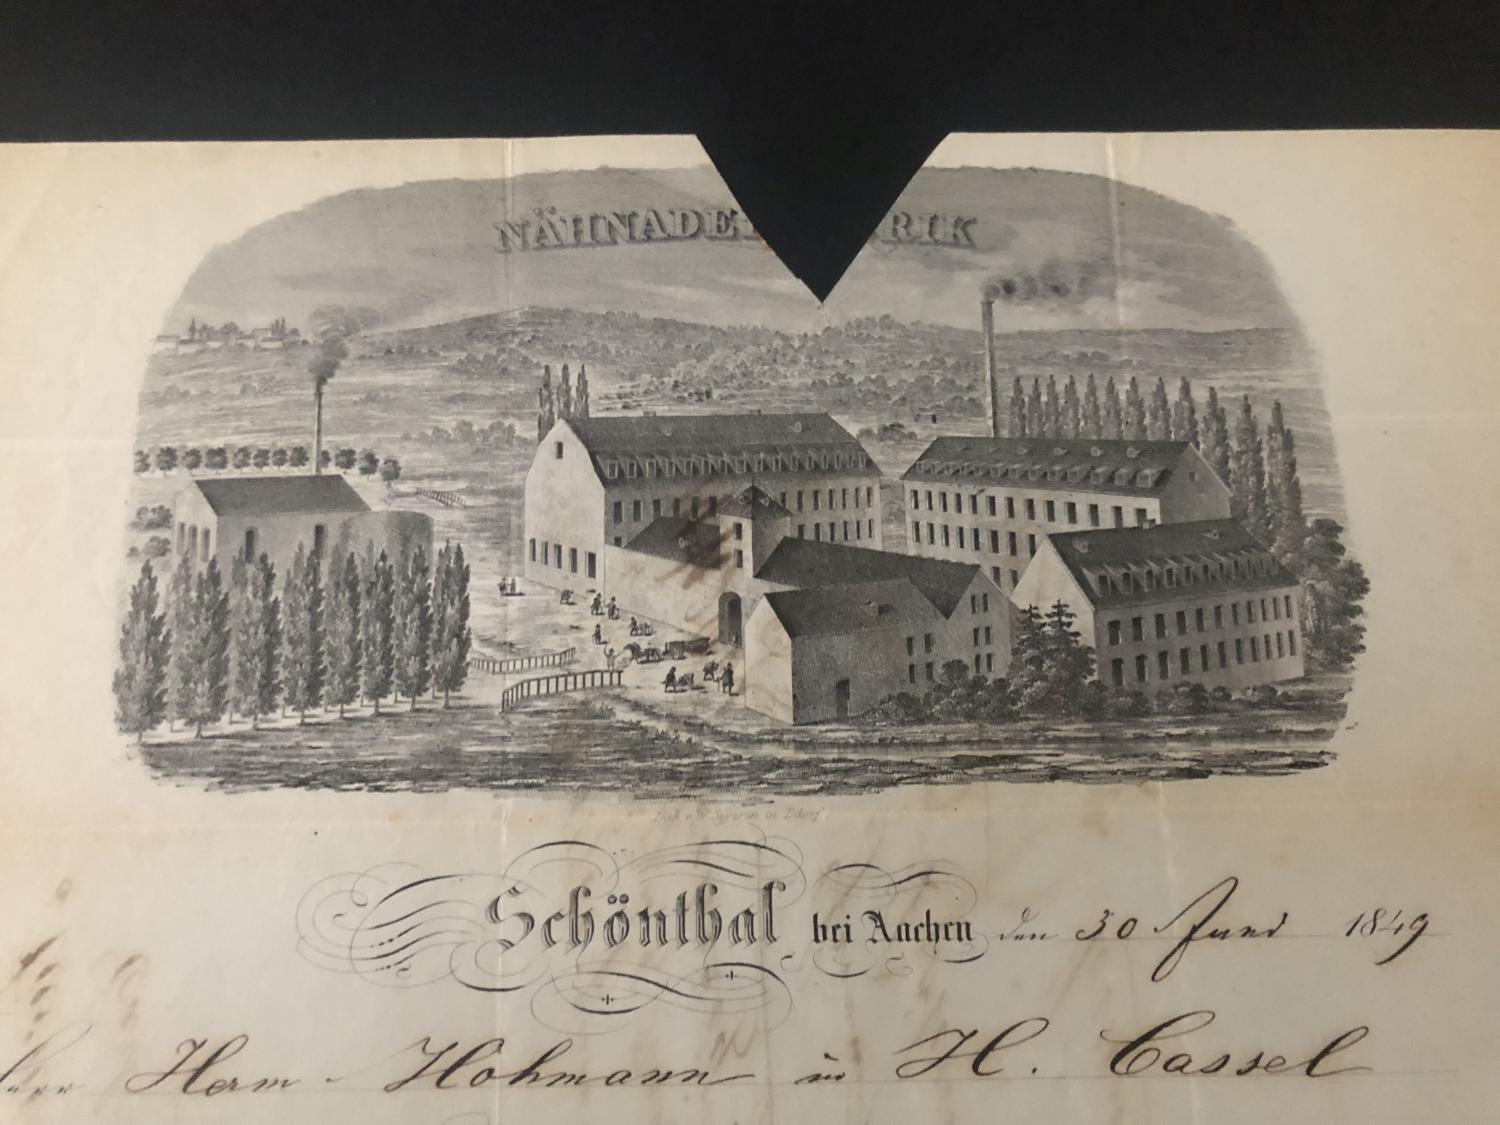 NÄHNADE RIK
Druck v. W. Severin in Ddorf.
Schönthal bei Aachen den 30 Juni 1849
Herrn Herm. Hohmann in H. Cassel